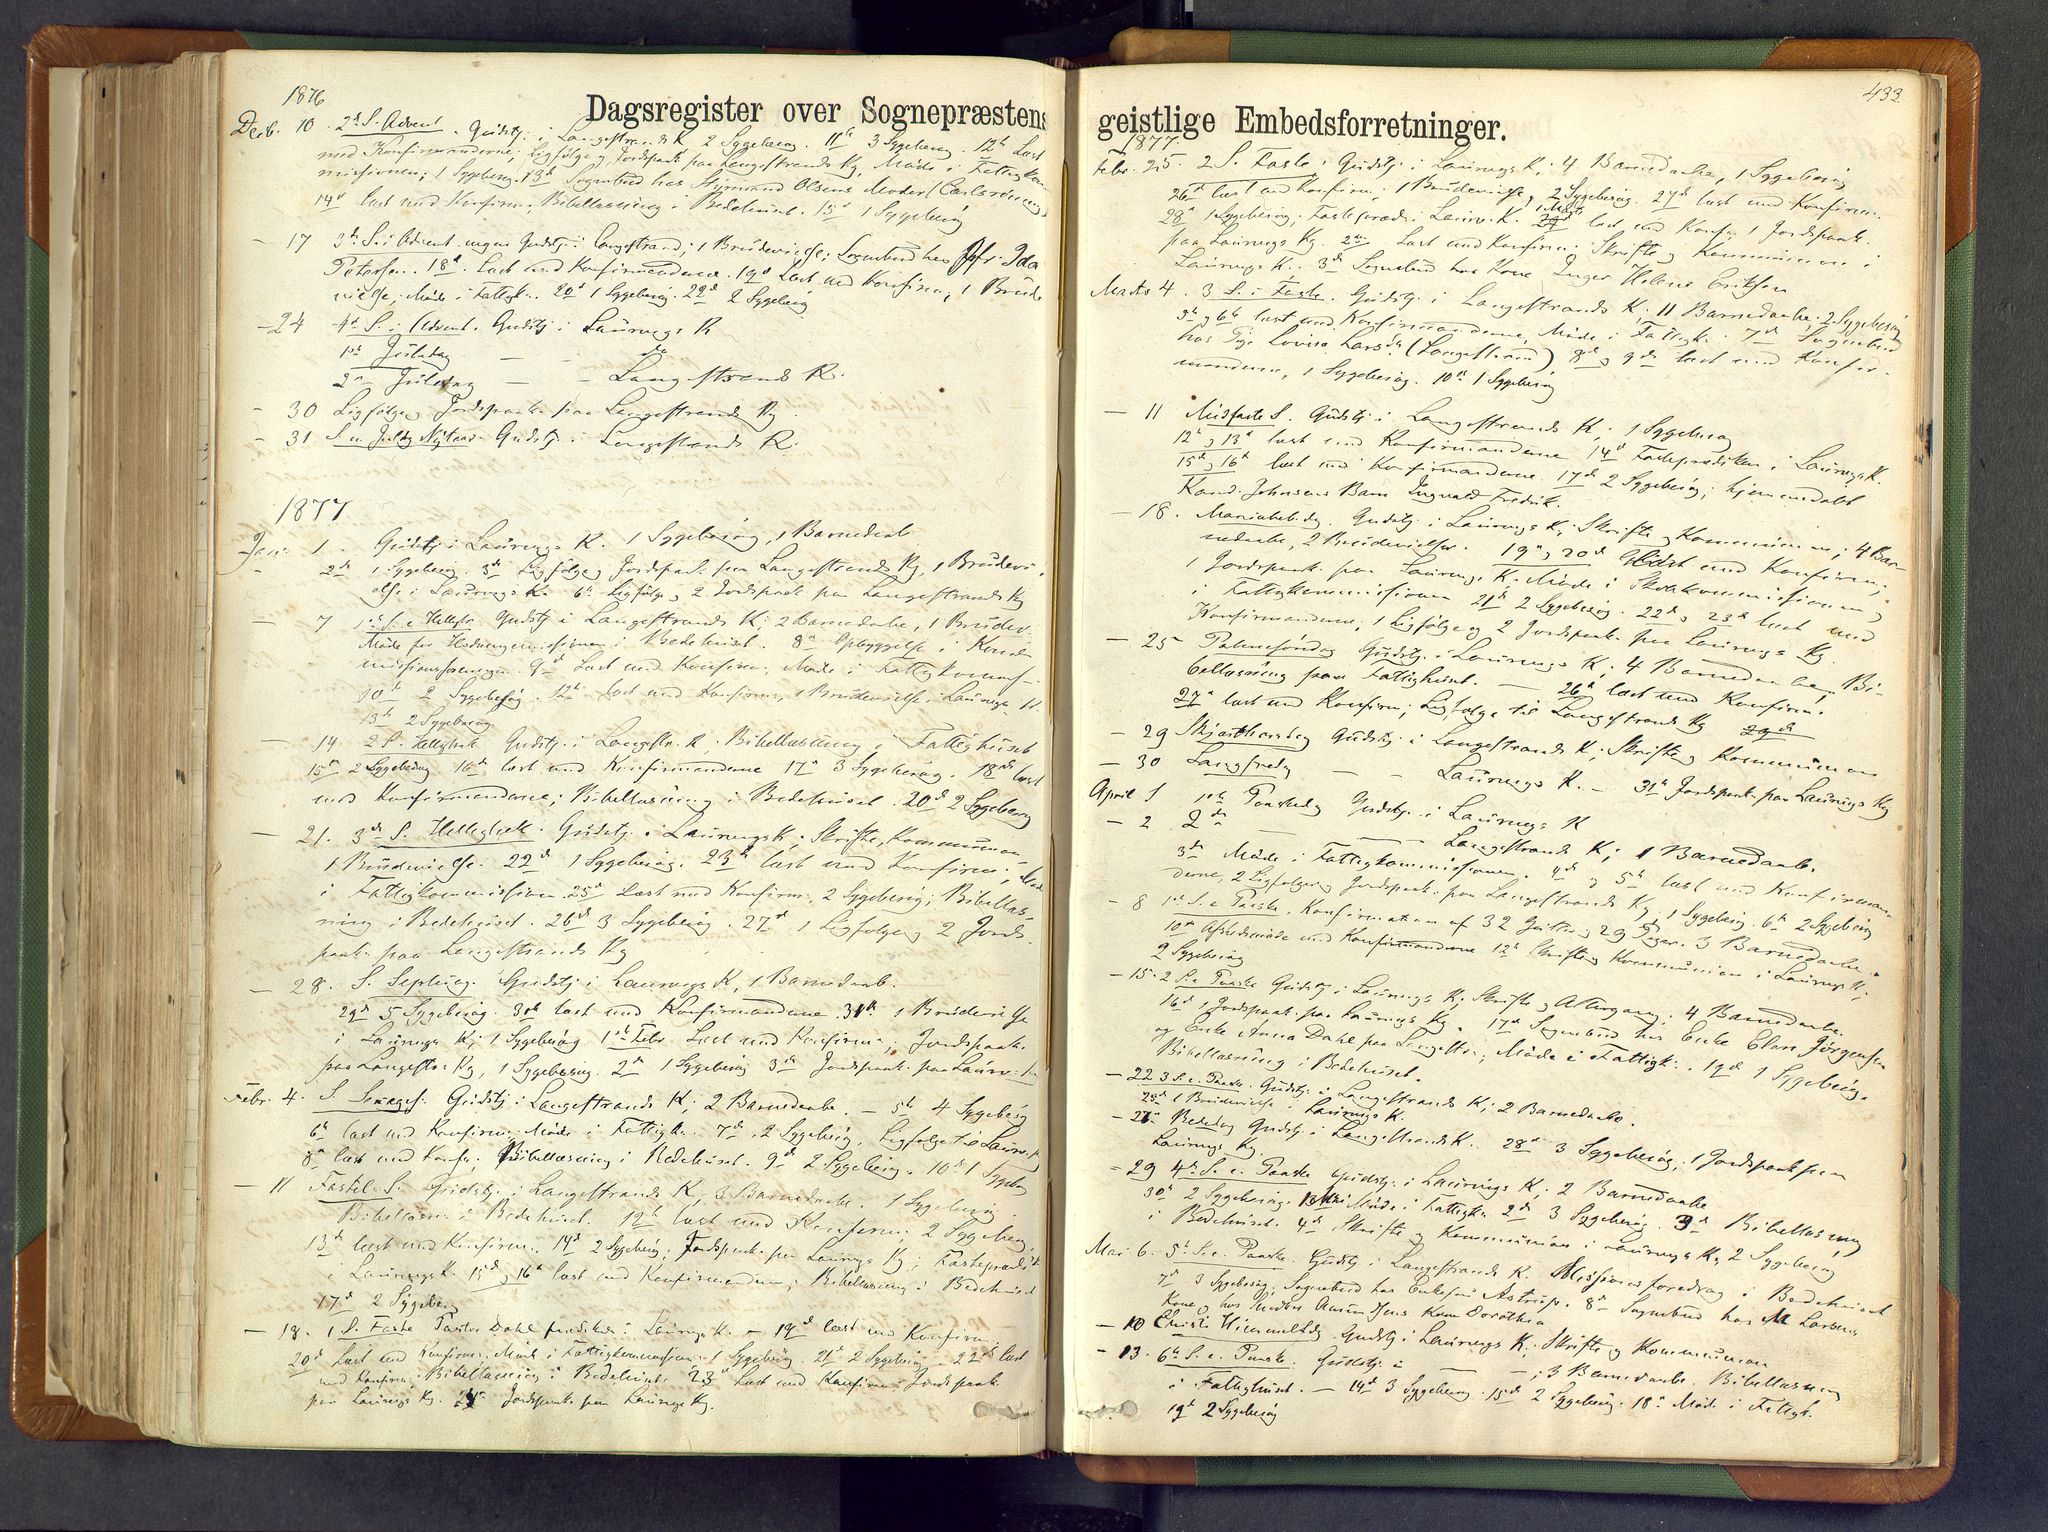 1876
Dagsregister over Sognepræstens
Decb. 10 2d S. i Advent. Gudstj. i Langestrands K 2 Sygebesøg. 11te 3 Sygebesøg. 12te Læst
med Konfirmanderne; Ligfølge og Jordspaak. paa Langestrands Kg, Møde i Fattigkom-
missionen; 1 Sygebesøg. 13d Sognebud hos Styrmand Olsens Moder (Carlsrønning)
14d læst med Konfirm., Bibellæsning i Bedehuset. 15d 1 Sygebesøg
- 17 3d S. i Advent ingen Gudstj. i Langestrand; 1 Brudevielse; Sognebud hos Jfr. Ida
Petersen. 18d Læst med Konfirmanderne. 19d Læst med Konfirm., 1 Brude
vielse, Møde i Fattigk. 20d 1 Sygebesøg. 22d 2 Sygebesøg
- 24 4d S. i Advent. Gudstj. i Laurvigs K
1ste Juledag — do
2den Juledag — - Langestrands K.
- 30 Ligfølge og Jordspaak. paa Langestrands Kg.
- 31 S. m. Jul og Nytaar Gudstj. i Langestrands K.
1877
Jan. 1. Gudstj. i Laurvigs K. 1 Sygebesøg, 1 Barnedaab
2den 1 Sygebesøg. 3die Ligfølge og Jordspaak. paa Langestrands Kg, 1 Brudevi-
else i Laurvigs K. 6te Ligfølge, 2 Jordspaak paa Langestrands Kg
- 7 1ste S. e. Helligtr. Gudstj. i Langestrands K; 2 Barnedaabe, 1 Brudev.
Møde for Hedningemissionen i Bedehuset. 8de Opbyggelse i Kvinde
missionsforeningen. 9d Læst med Konfirm. Møde i Fattigkomm-
10de 2 Sygebesøg. 12te læst med Konfirm., 1 Brudevielse i Laurvigs K.
13de 2 Sygebesøg.
- 14 2 S. Helligtrek. Gudstj. i Langestr. K; Bibellæsning i Fattighuset
15d 2 Sygebesøg 16d læst med Konfirmanderne 17d 3 Sygebesøg. 18de læst
med Konfirmanderne; Bibellæsning i Bedehuset. 20d 2 Sygebesøg
- 21. 3die S. Helligtrek. Gudstj. i Laurvigs K; Skrifte, Kommunion,
1 Brudevielse. 22d 1 Sygebesøg. 23d læst med Konfirm.; Møde
i Fattigkommissionen 25d Læst med Konfirm; 2 Sygebesøg; Bibellæs-
ning i Bedehuset. 26d 3 Sygebesøg. 27d 1 Ligfølge og 2 Jords-
paak. paa Langestrands Kg
- 28. S. Septuag. Gudstj. i Laurvigs K, 1 Barnedaab.
29d 5 Sygebesøg. 30te læst med Konfirmanderne. 31te 1 Brudevielse
i Laurvigs K; 1 Sygebesøg 1ste Febr. Læst med Konfirm.; Jordspaak.
paa Langestr. Kg, 1 Sygebesøg. 2d 1 Sygebesøg 3die Jordspaak. paa Laurv.
Febr. 4. S. Sexages. Gudstj. i Langestrands K; 2 Barnedaabe. - 5te 4 Sygebesøg
6te læst med Konfirm., Møde i Fattigk. 7d 2 Sygebesøg, Ligfølge til Laurv. Kg
8de læst med Konfir., Bibellæsning i Bedehuset. 9d 2 Sygebesøg. 10de 1 Sygebesøg
- 11 Fastel. S. Gudstj. i Langestrands K, 3 Barnedaabe. 1 Sygebesøg.
Bibellæsn. i Bedehuset. 12te læst med Konfirm. 2 Sygebesøg
13de læst med Konfirm., 14d 2 Sygebesøg; Jordspaak. paa Laurvigs Kg; Fasteprædik
i Laurvigs K. 15d og 16d læst med Konfirmanderne; Bibellæsning i Bedehuset
17d 2 Sygebesøg
- 18. 1 S. Faste Pastor Dahl prædiked i Laurvigs K. - 19d læst med Konfirm.
20d Læst med Konfirm. Møde i Fattigkommissionen; 1 Sygebesøg. 21d 2 Sygebesøg. 22d læst
med Konfirm. Bibellæsning i Bedehuset. 23d Læst med Konfirm. Jordspaak
paa Laurvigs Kg. 24de Jordspaak paa Laurvigs Kg.
433.
geistlige Embedsforretninger.
1877.
Febr. 25. 2 S. Faste. Gudstj. i Laurvigs K; 4 Barnedaabe, 1 Sygebesøg
26d læst med Konfirm.; 1 Brudevielse, 2 Sygebesøg. 27d læst med Konfirm.
28d 1 Sygebesøg; Fasteprædi. i Laurv. K. 1 Marts læst med Konfir; 1 Jordspaak.
paa Laurvigs Kg 2den Læst med Konfirm. Skrifte og Kommunion i
Laurvigs K. 3d Sognebud hos Kone Inger Helene Eriksen
Marts 4. 3 S. i Faste. Gudstj. i Langestrands K; 11 Barnedaabe. 2 Sygebesøg
5te og 6te læst med Konfirmanderne, Møde i Fattigk. 7d Sognebud
hos Pige Lovise Larsd. (Langestrand) 8d og 9de læst med Konfir-
manderne, 1 Sygebesøg. 10de 1 Sygebesøg
- 11 Midfaste S. Gudstj. i Langestrands K; 1 Sygebesøg
12te og 13d læst med Konfirmanderne 14d Fasteprædiken i Laurvigs K.
15d og 16d læst med Konfirmanderne. 17de 2 Sygebesøg; hjemmedøbt
Kand. Johnsens Barn Ingvald Fredrik.
- 18. Mariabeb.dag. Gudstj. i Laurvigs K, Skrifte og Kommunion; 4 Bar-
nedaabe, 2 Brudevielser. 19d og 20d Læst med Konfirm.;
1 Jordspaak. paa Laurvigs K. Møde i Skolekommissionen og
i Fattigkommissionen 21d 2 Sygebesøg. 22d og 23d læst med
Konfirmanderne; 1 Ligfølge og 2 Jordspaak. paa Laurvigs Kg.
- 25 Palmesøndag Gudstj. i Laurvigs K; 4 Barnedaabe; Bi-
bellæsning paa Fattighuset. — 26d læst med Konfirm.
27d læst med Konfirm; Ligfølge til Langestrands Kg 29de
- 29 Skjærthorsdag Gudstj. i Langestrands K; Skrifte og Kommunion
- 30 Langfredag — - Laurvigs K. - 31te Jordspaak. paa Laurvigs Kg
April 1 1ste Paaskedag Gudstj. i Laurvigs K
- 2 2den — — Langestrands K; 1 Barnedaab.
3die Møde i Fattigkommissionen. 4d og 5te læst med Konfirman-
derne, 2 Ligfølge og Jordspaak. paa Langestrands Kg, 1 Sygebesøg. 6te 2 Sygebesøg
- 8 1ste S. e. Paaske. Konfirmation af 32 Gutter og 29 Piger. 3 Barnedaabe.
10de Afskedsmøde med Konfirmanderne 12te Skrifte og Kommunion i Laurvigs K;
2 Sygebesøg
- 15. 2 S. e. Paaske Gudstj. i Laurvigs K; Skrifte og Altergang; 4 Barnedaabe.
16d 1 Jordspaak. paa Laurvigs Kg. 17d Sognebud hos Enke Elen Jørgensen
og Enke Anna Dahl paa Langestr.; Møde i Fattigk. 19d 1 Sygebesøg.
Bibellæsning i Bedehuset.
- 22 3 S. e. Paaske. Gudstj. i Langestrands K; 2 Barnedaabe.
25d 1 Brudevielse i Laurvigs K.
- 27. Bededag Gudstj. i Langestrands K. 28d 3 Sygebesøg; 1 Jordspaak paa
Laurvigs Kg.
- 29 4de S. e. Paaske Gudstj. i Laurvigs K; 2 Barnedaabe
30te 2 Sygebesøg. 1 Mai Møde i Fattigk. 2d 3 Sygebesøg. 3d Bibellæsning
i Bedehuset. 4d Skrifte og Kommunion i Laurvigs K; 2 Sygebesøg
Mai 6. 5te S. e. Paaske. Gudstj. i Langestrands K. Missionsforedrag i Bedehuset
7d 3 Sygebesøg, Sognebud hos Enkefru Astrup. 8d Sognebud hos M Larsens
Kone, hos Snedker Amund Jens Kone Dorothea
- 10 Christi Himmelfdg Gudstj. i Laurvigs K; Skrifte og Kommunion
- 13. 6te S. e. Paaske. Gudstj. i — - ; 3 Barnedaabe. Bibellæsning
i Fattighuset. - 14d 3 Sygebesøg. 15d 2 Sygebesøg. 18d Møde i Fattigk.
19d 2 Sygebesøg